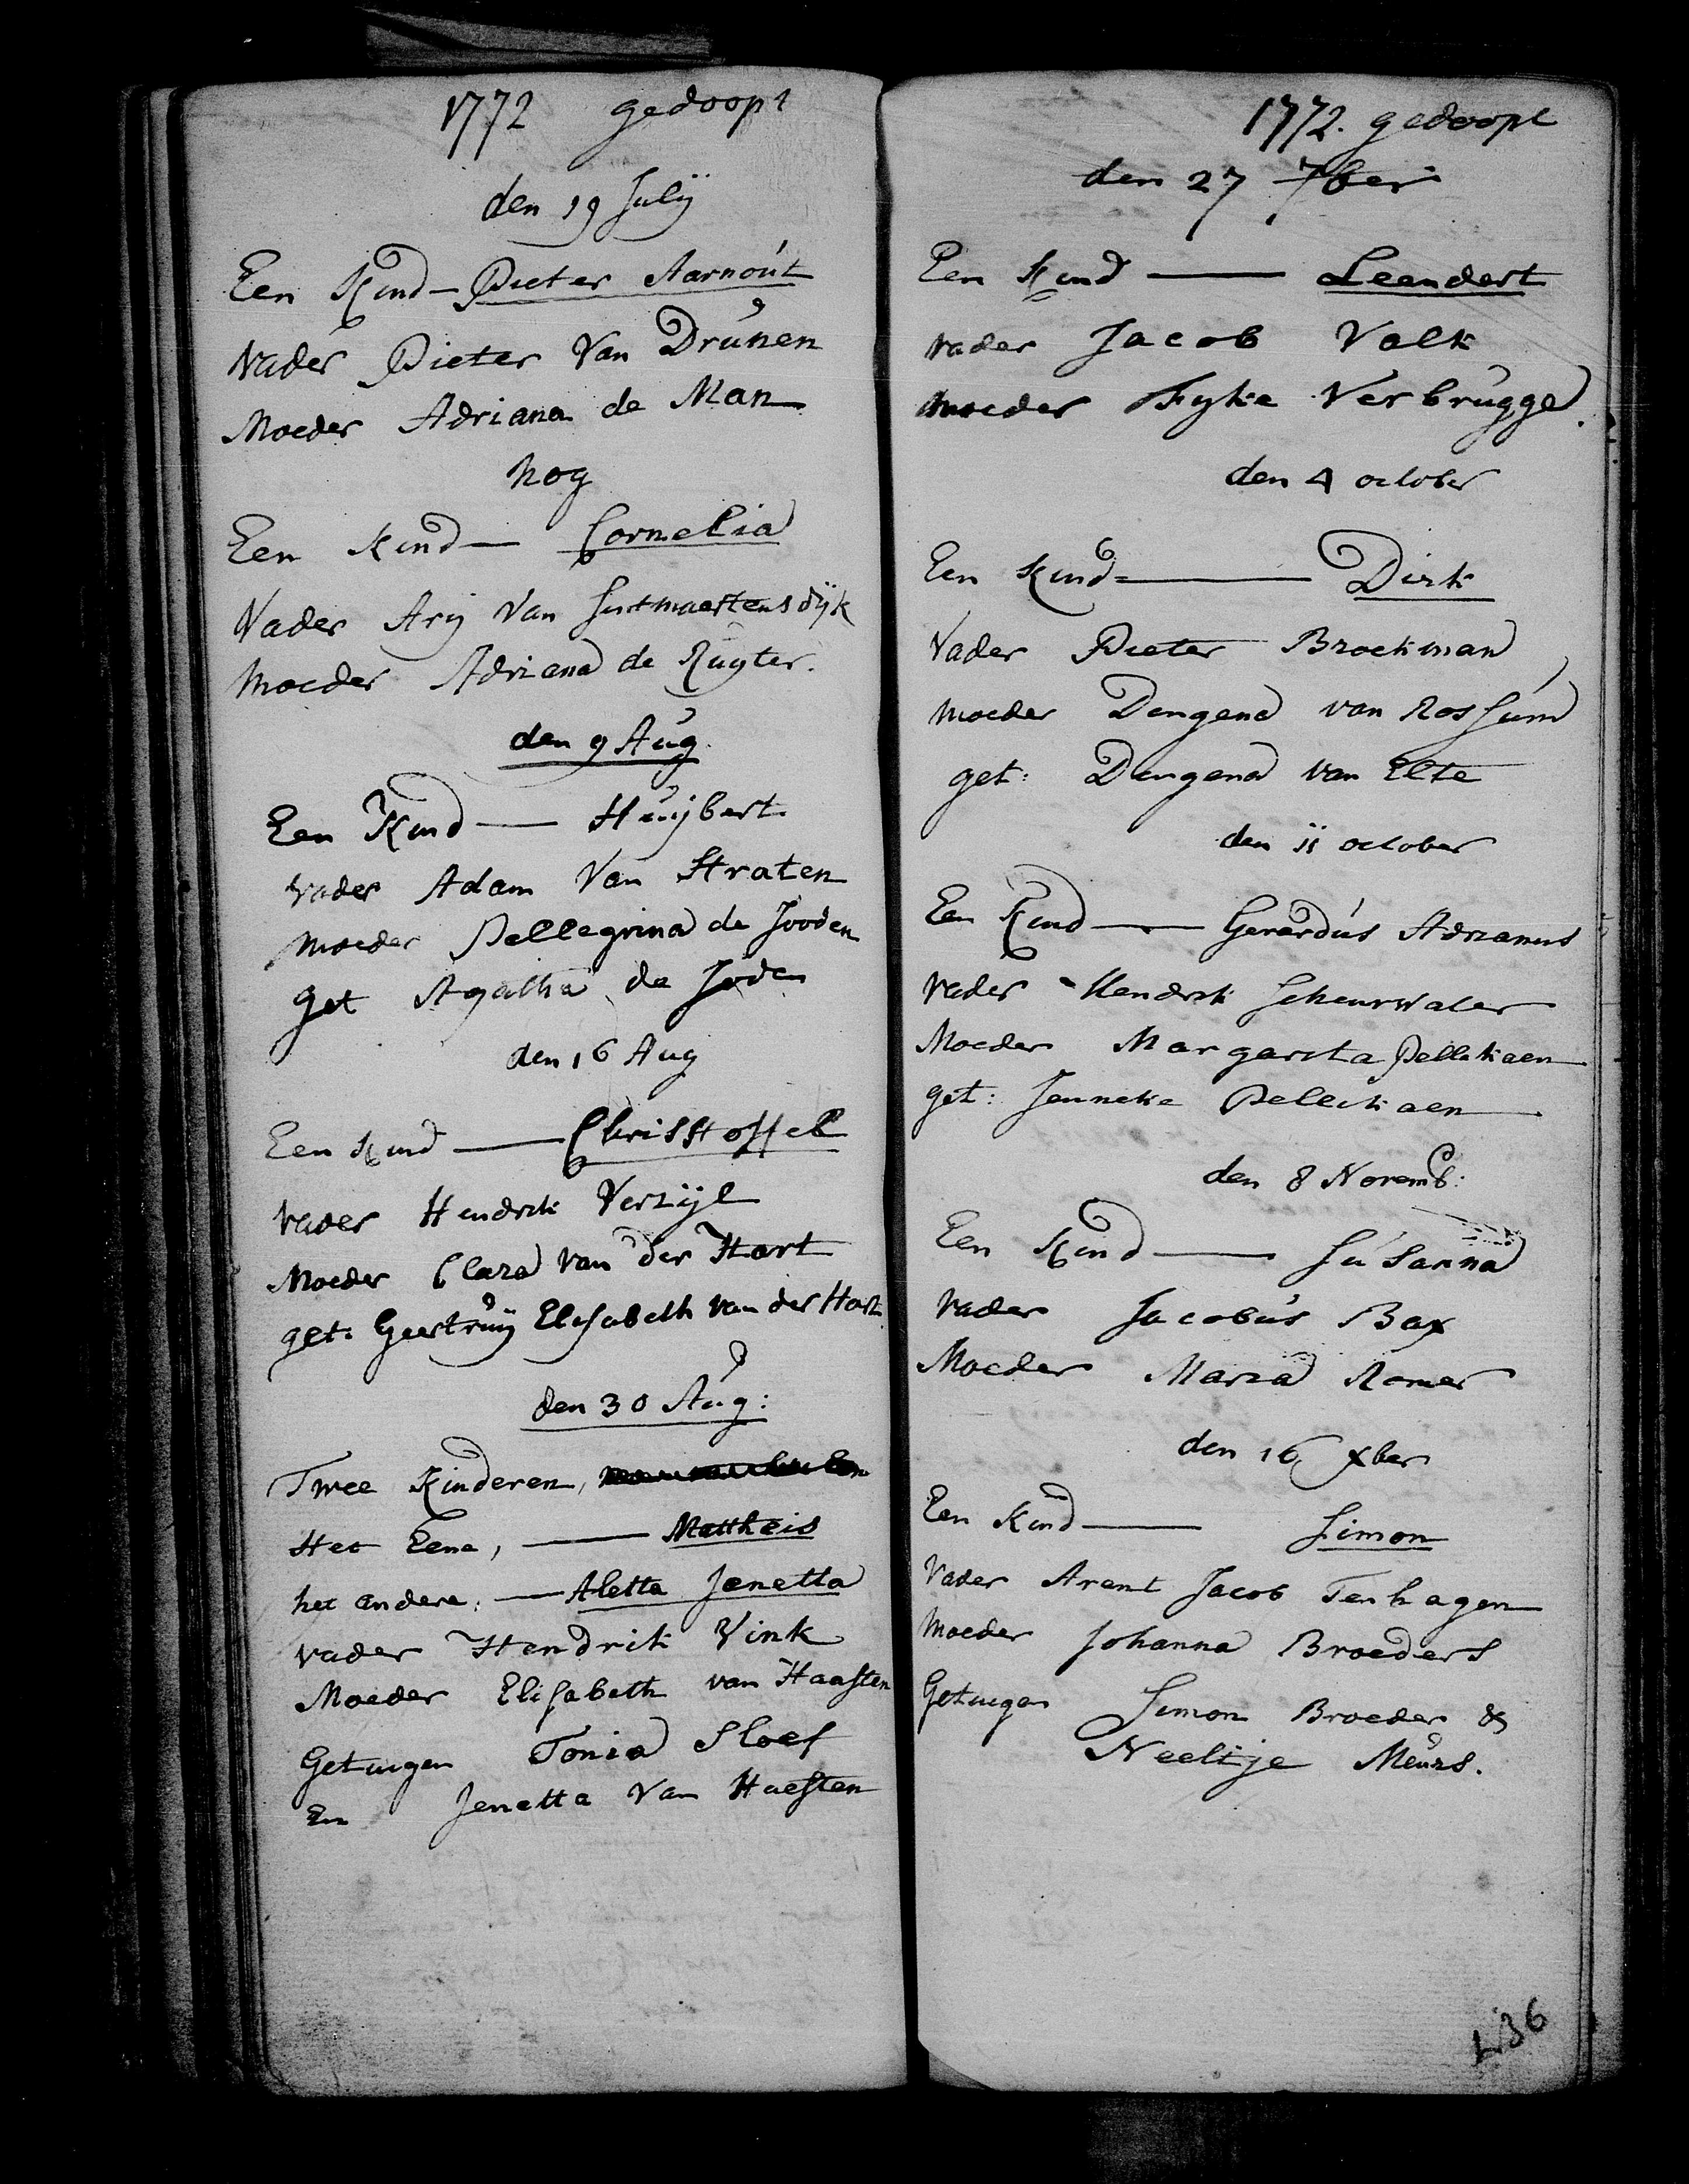 1772 gedoopt
den 19 Julij
Een Kind - Pieter Aarnout
Vader Pieter Van Drunen
Moeder Adriana de Man
nog
Een Kind - Cornelia
Vader Arij Van Sintmaertensdijk
Moeder Adriana de Ruyter.
den 9 Aug.
Een Kind - Huijbert
Vader Adam Van Straten
Moeder Pellegrina de Jooden
get Agatha de Joden
den 16 Aug
Een Kind - Christtoffel
Vader Hendrik Verzijl
Moeder Clara van der Hart
get: Geertruij Elisabeth van der Hart
den 30 Aug:
Twee Kinderen,
Het Eene, - Mattheis
het andere, - Aletta Janetta
Vader Hendrik Vink
Moeder Elisabeth van Haasten
Getuigen Tonia Sloef
En Jenetta Van Haesten
1772. gedoopt
den 27 7ber
Een Kind - Leendert
Vader Jacob Valk
Moeder Fyke Verbrugge.
den 4 october
Een Kind - Dirk
Vader Pieter Broekman
Moeder Dingena van Rossum
get: Dingena van Elte
den 11 october
Een Kind - Gerardus Adrianus
Vader Hendrik Scheurwater
Moeder Margarita Pellekaen
get: Jenneke Pellekaen
den 8 Novemb:
Een Kind - Susanna
Vader Jacobus Bax
Moeder Maria Romer
den 16 xber
Een Kind - Simon
Vader Arent Jacob Tenhagen
Moeder Johanna Broeders
Getuigen Simon Broeder &
Neeltje Meurs.